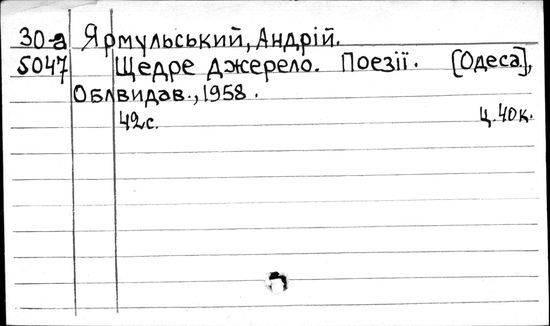 30-а Ярмульський, Андрій.
5047 Щедре джерело. Поезії. [Одеса],
Облвидав., 1958.
42с. ц. 40к.